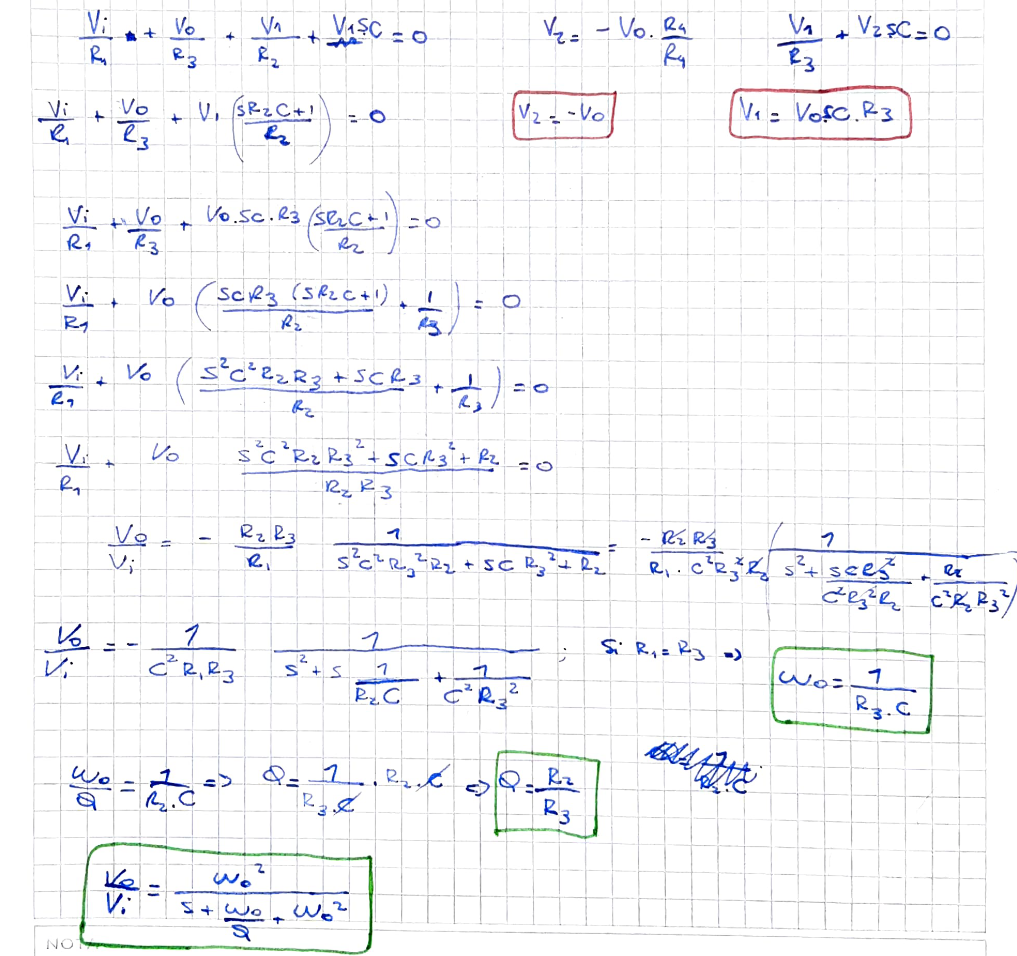 Vi/R1 + Vo/R3 + V1/R2 + V1SC = 0    V2 = - Vo . R4/R4    V1/R3 + V2SC = 0
Vi/R1 + Vo/R3 + V1 (SR2C+1 / R2) = 0    V2 = -Vo    V1 = Vo.SC.R3
Vi/R1 + Vo/R3 + Vo.SC.R3 (SR2C+1 / R2) = 0
Vi/R1 + Vo (SCR3 (SR2C+1) / R2 + 1/R3) = 0
Vi/R1 + Vo (S²C²R2R3 + SCR3 / R2 + 1/R3) = 0
Vi/R1 + Vo S²C²R2R3² + SCR3² + R2 / R2R3 = 0
Vo/Vi = - R2R3/R1 1 / S²C²R3²R2 + SCR3² + R2 = -R2R3 / R1.C²R3²R2 (1 / S² + SCR3² / C²R3²R2 + R2 / C²R2R3²)
Vo/Vi = - 1 / C²R1R3 1 / S² + S 1/R2C + 1/C²R3² ; Si R1 = R3 => ωo = 1 / R3.C
ωo/Q = 1 / R2.C => Q = 1 / R3.C . R2.C => Q = R2/R3
R2.C
Vo/Vi = ωo² / S + ωo/Q + ωo²
NOT